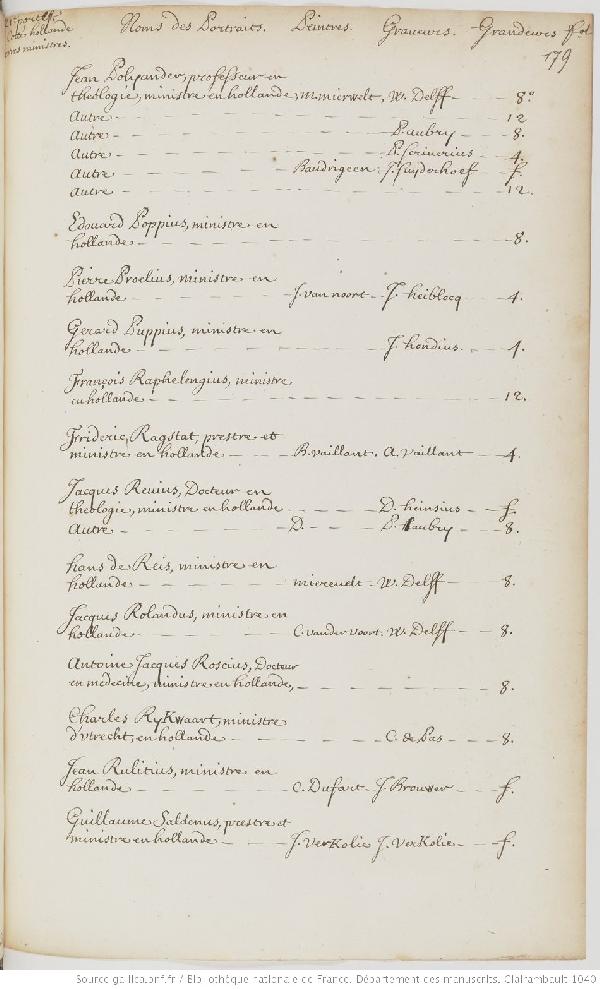 21e portef.
Cote hollande
ministres.
Noms des Portraits. Peintres. Graveurs. Grandeurs fol
179
Jean Polyander, professeur en
theologie, ministre en hollande, m. mierwelt. W. Delff - 8.°
Autre - 12
Autre - P. aubry - 8.
Autre - P. Scriverius - 4.
Autre - Baudrigeen - J. Suyderhoef - f.
Autre - 12.
Edouard Poppius, ministre en
hollande - 8.
Pierre Proelius, ministre en
hollande - J. van noort - J. heiblocq - 4.
Gerard Puppius, ministre en
hollande - J. hondius. - 4.
François Raphelengius, ministre
en hollande - 12.
Frideric Ragstat, prestre et
ministre en hollande - B. vaillant. A. vaillant - 4.
Jacques Revius, Docteur en
theologie, ministre en hollande - D. heinsius - f.
Autre - D. - P. aubry - 8.
hans de Reis, ministre en
hollande - miereuelt - W. Delff - 8.
Jacques Rolandus, ministre en
hollande - C. vander voort. W. Delff - 8.
Antoine Jacques Roscius, Docteur
en medecine, ministre en hollande, - 8.
Charles RyKwaart, ministre
d'utrecht, en hollande - C. de Pas - 8.
Jean Rulitius, ministre en
hollande - C. Dufart - J. Brouwer - f.
Guillaume Saldenus, prestre et
ministre en hollande - J. VerKolie J. VerKolie - f.
Source gallica.bnf.fr / Bibliothèque nationale de France. Département des manuscrits. Clairambault 1040